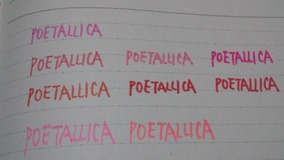 POETALLICA
POETALLICA POETALLICA POETALLICA
POETALLICA POETALLICA POETALLICA
POETALLICA POETALLICA